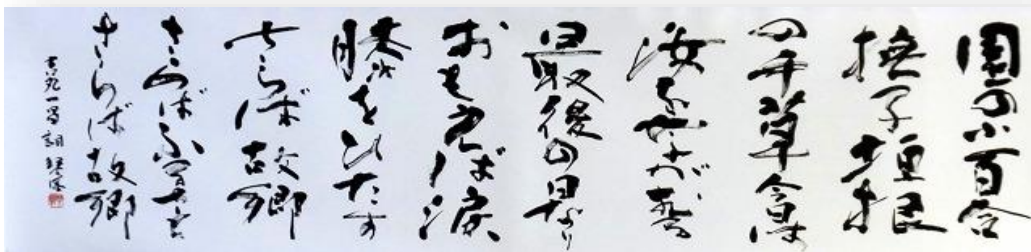 園の小百合
撫子垣根
の千草今日は
汝をながむる
最後の日なり
おもえば涙
膝をひたす
さらば故郷
さらばふるさと
さらば故郷
吉丸一昌 詞